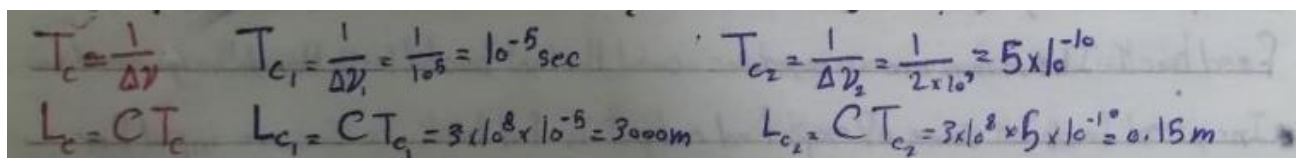 T_c = 1/Δν   T_c₁ = 1/Δν₁ = 1/10⁵ = 10⁻⁵ sec   T_c₂ = 1/Δν₂ = 1/(2×10⁹) = 5×10⁻¹⁰
L_c = C T_c   L_c₁ = C T_c₁ = 3×10⁸ × 10⁻⁵ = 3000m   L_c₂ = C T_c₂ = 3×10⁸ × 5×10⁻¹⁰ = 0.15 m